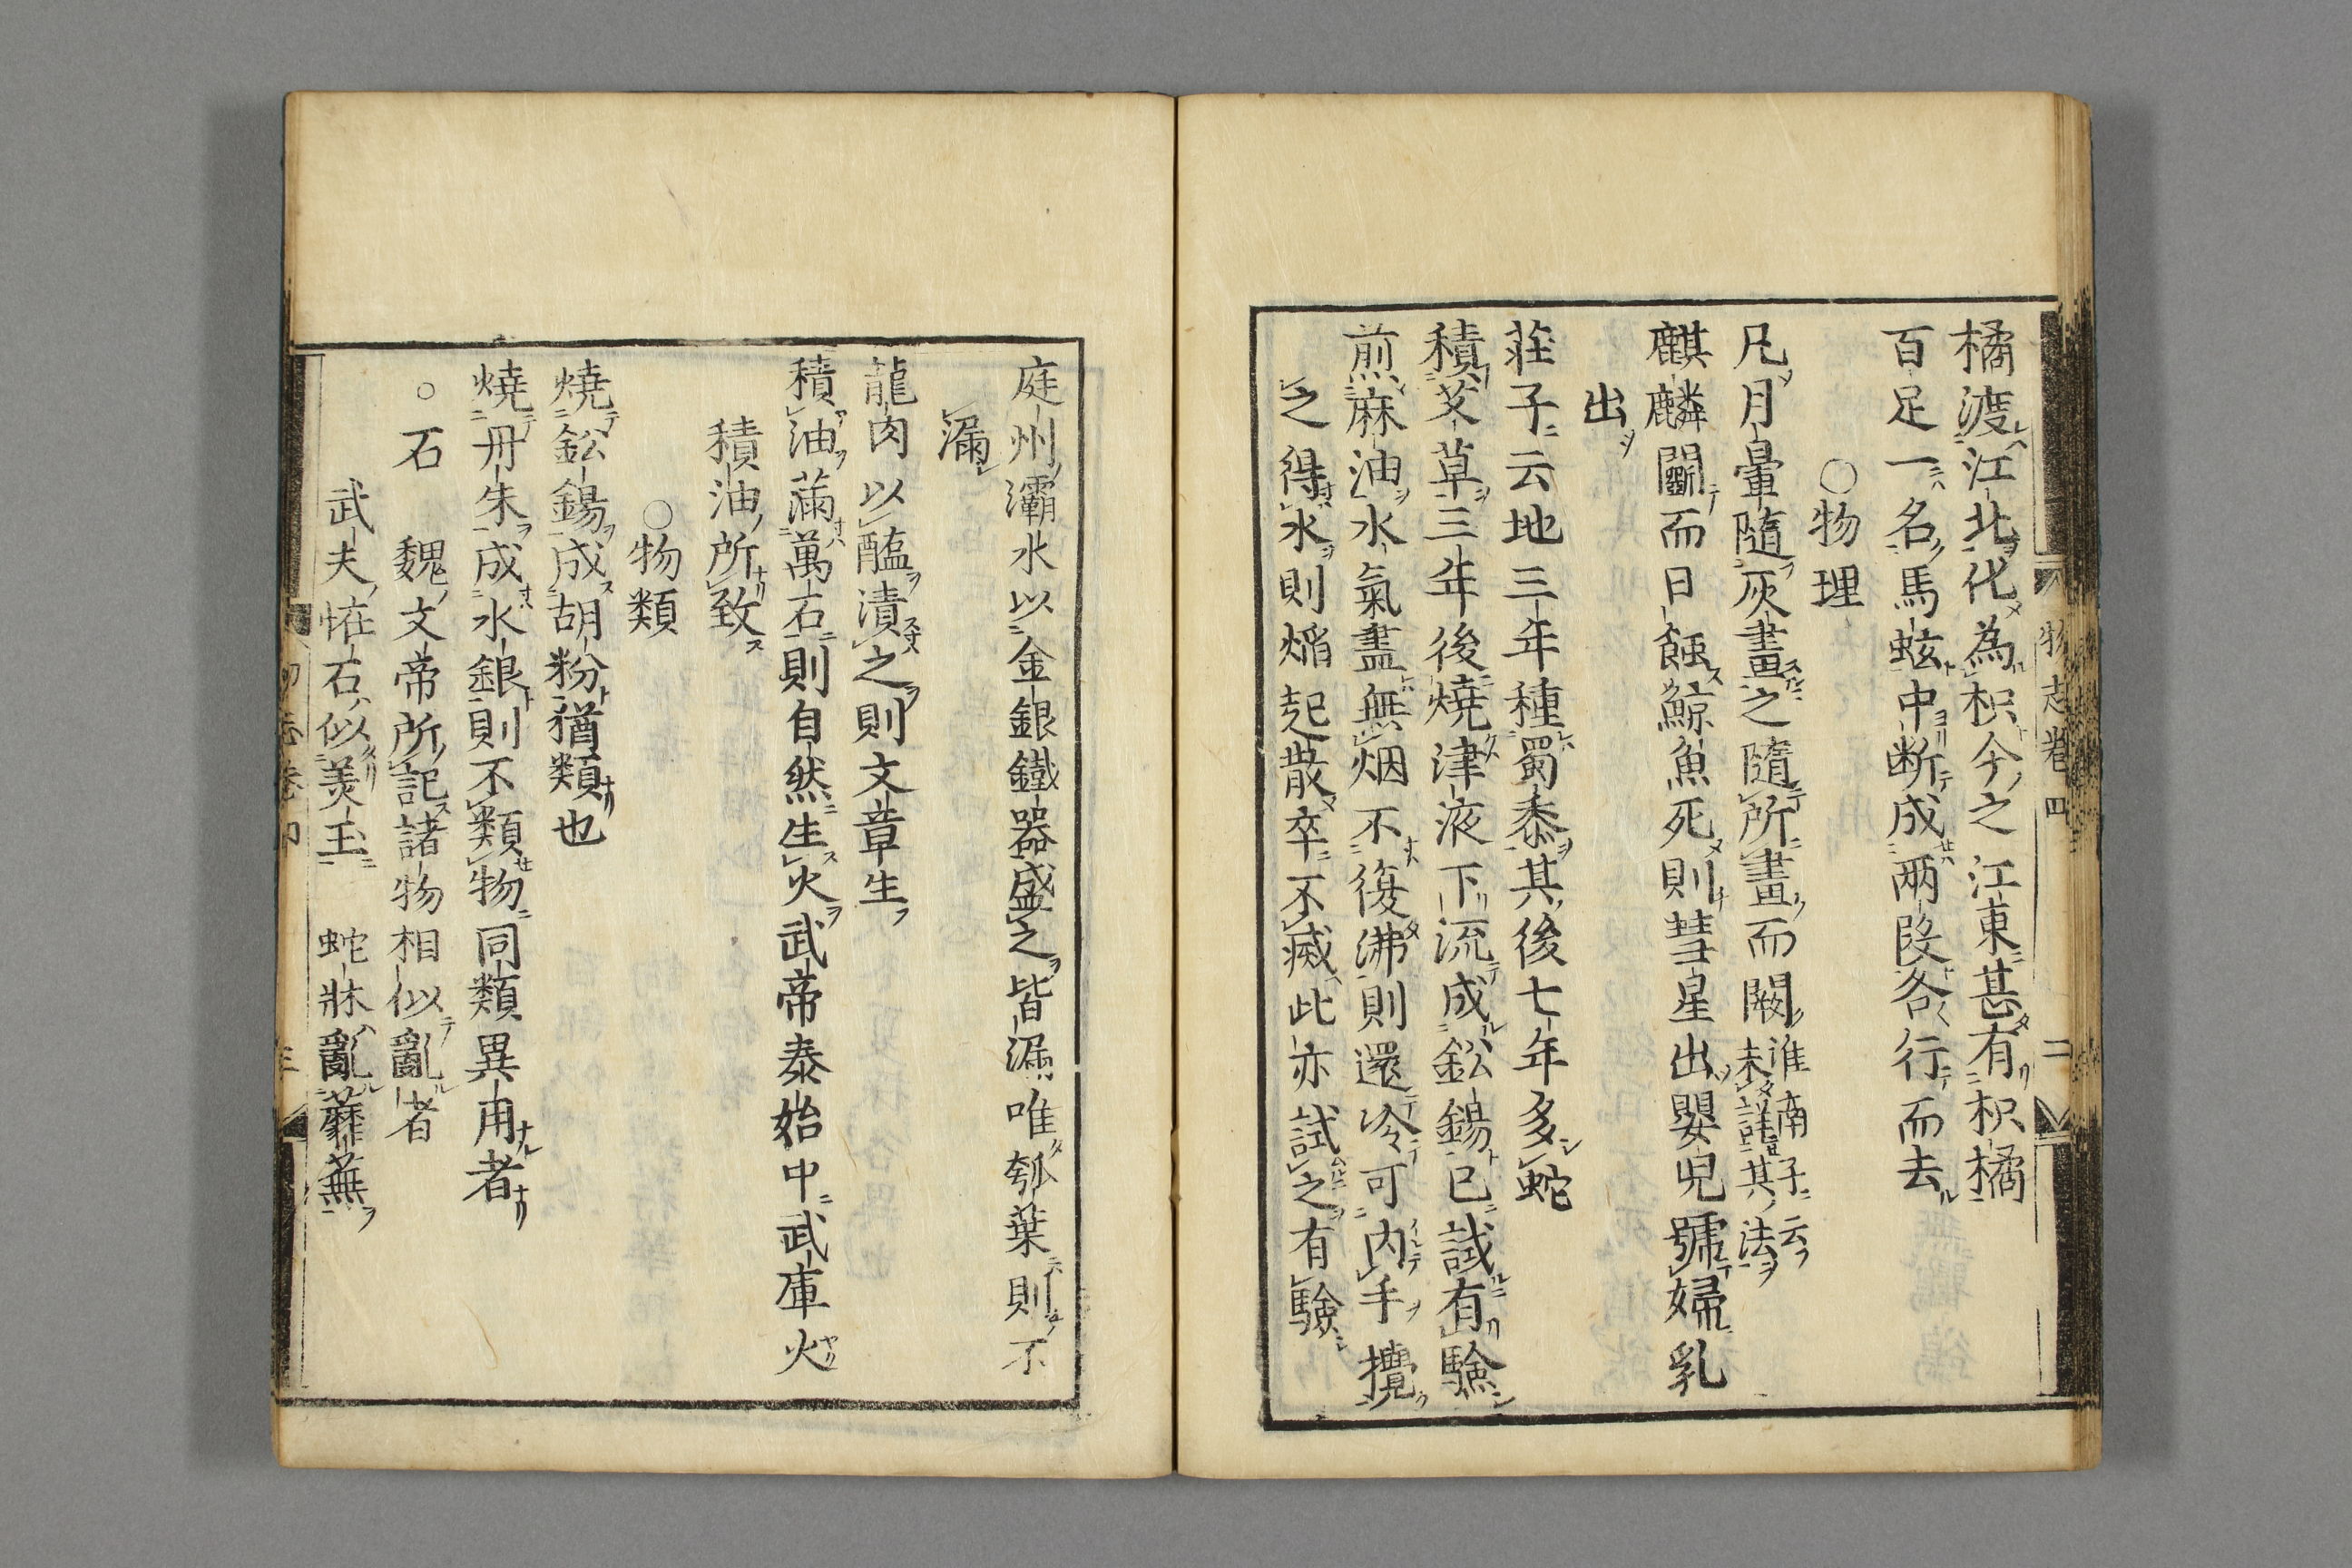 橘渡江北化為枳今之江東甚有枳橘
百足一名馬蚿中断成兩段各行而去
○物理
凡月暈隨灰畫之隨所畫而闕淮南子云未詳其法
麒麟鬭而日蝕鯨魚死則彗星出嬰兒號婦乳
出
莊子云地三年種蜀黍其後七年多蛇
積艾草三年後燒津液下流成鈆錫已試有驗
煎麻油水氣盡無烟不復沸則還冷可内手攪
之得水則焰起散卒不滅此亦試之有驗
物志卷四 二
庭州灞水以金銀鐵器盛之皆漏唯瓠葉則不
漏
龍肉以醢漬之則文章生
積油滿萬石則自然生火武帝泰始中武庫火
積油所致
○物類
燒鈆錫成胡粉猶類也
燒丹朱成水銀則不類物同類異用者
○石 魏文帝所記諸物相似亂者
武夫怪石似美玉 蛇牀亂蘼蕪